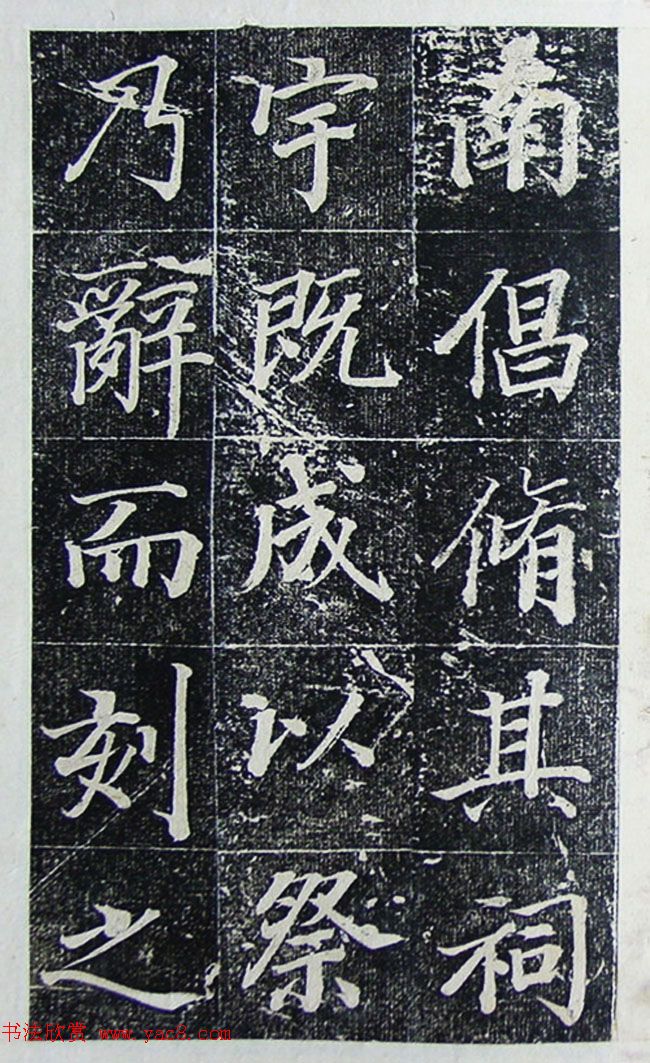 南倡脩其祠
宇既成以祭
乃辭而刻之
书法欣赏 www.yac8.com